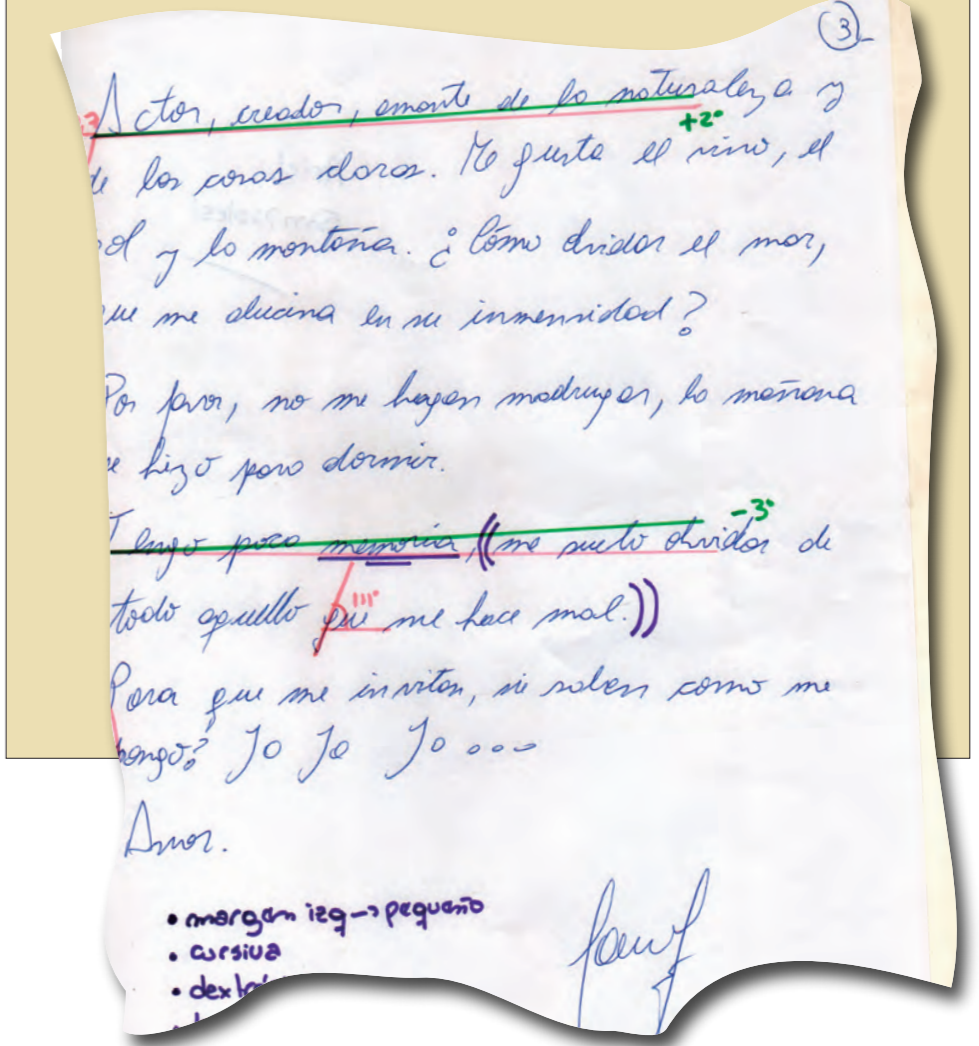 3
Actor, creador, amante de la naturaleza y
+2°
de las cosas claras. Me gusta el vino, el
sol y la montaña. ¿Cómo olvidar el mar,
que me alucina en su inmensidad?
Por favor, no me hagan madrugar, la mañana
se hizo para dormir.
-3°
Tengo poca memoria, ((me suelo olvidar de
111°
todo aquello que me hace mal.))
Para que me invitan, si saben como me
pongo? Ja Ja Ja...
Amor.
• margen izq → pequeño
• cursiva